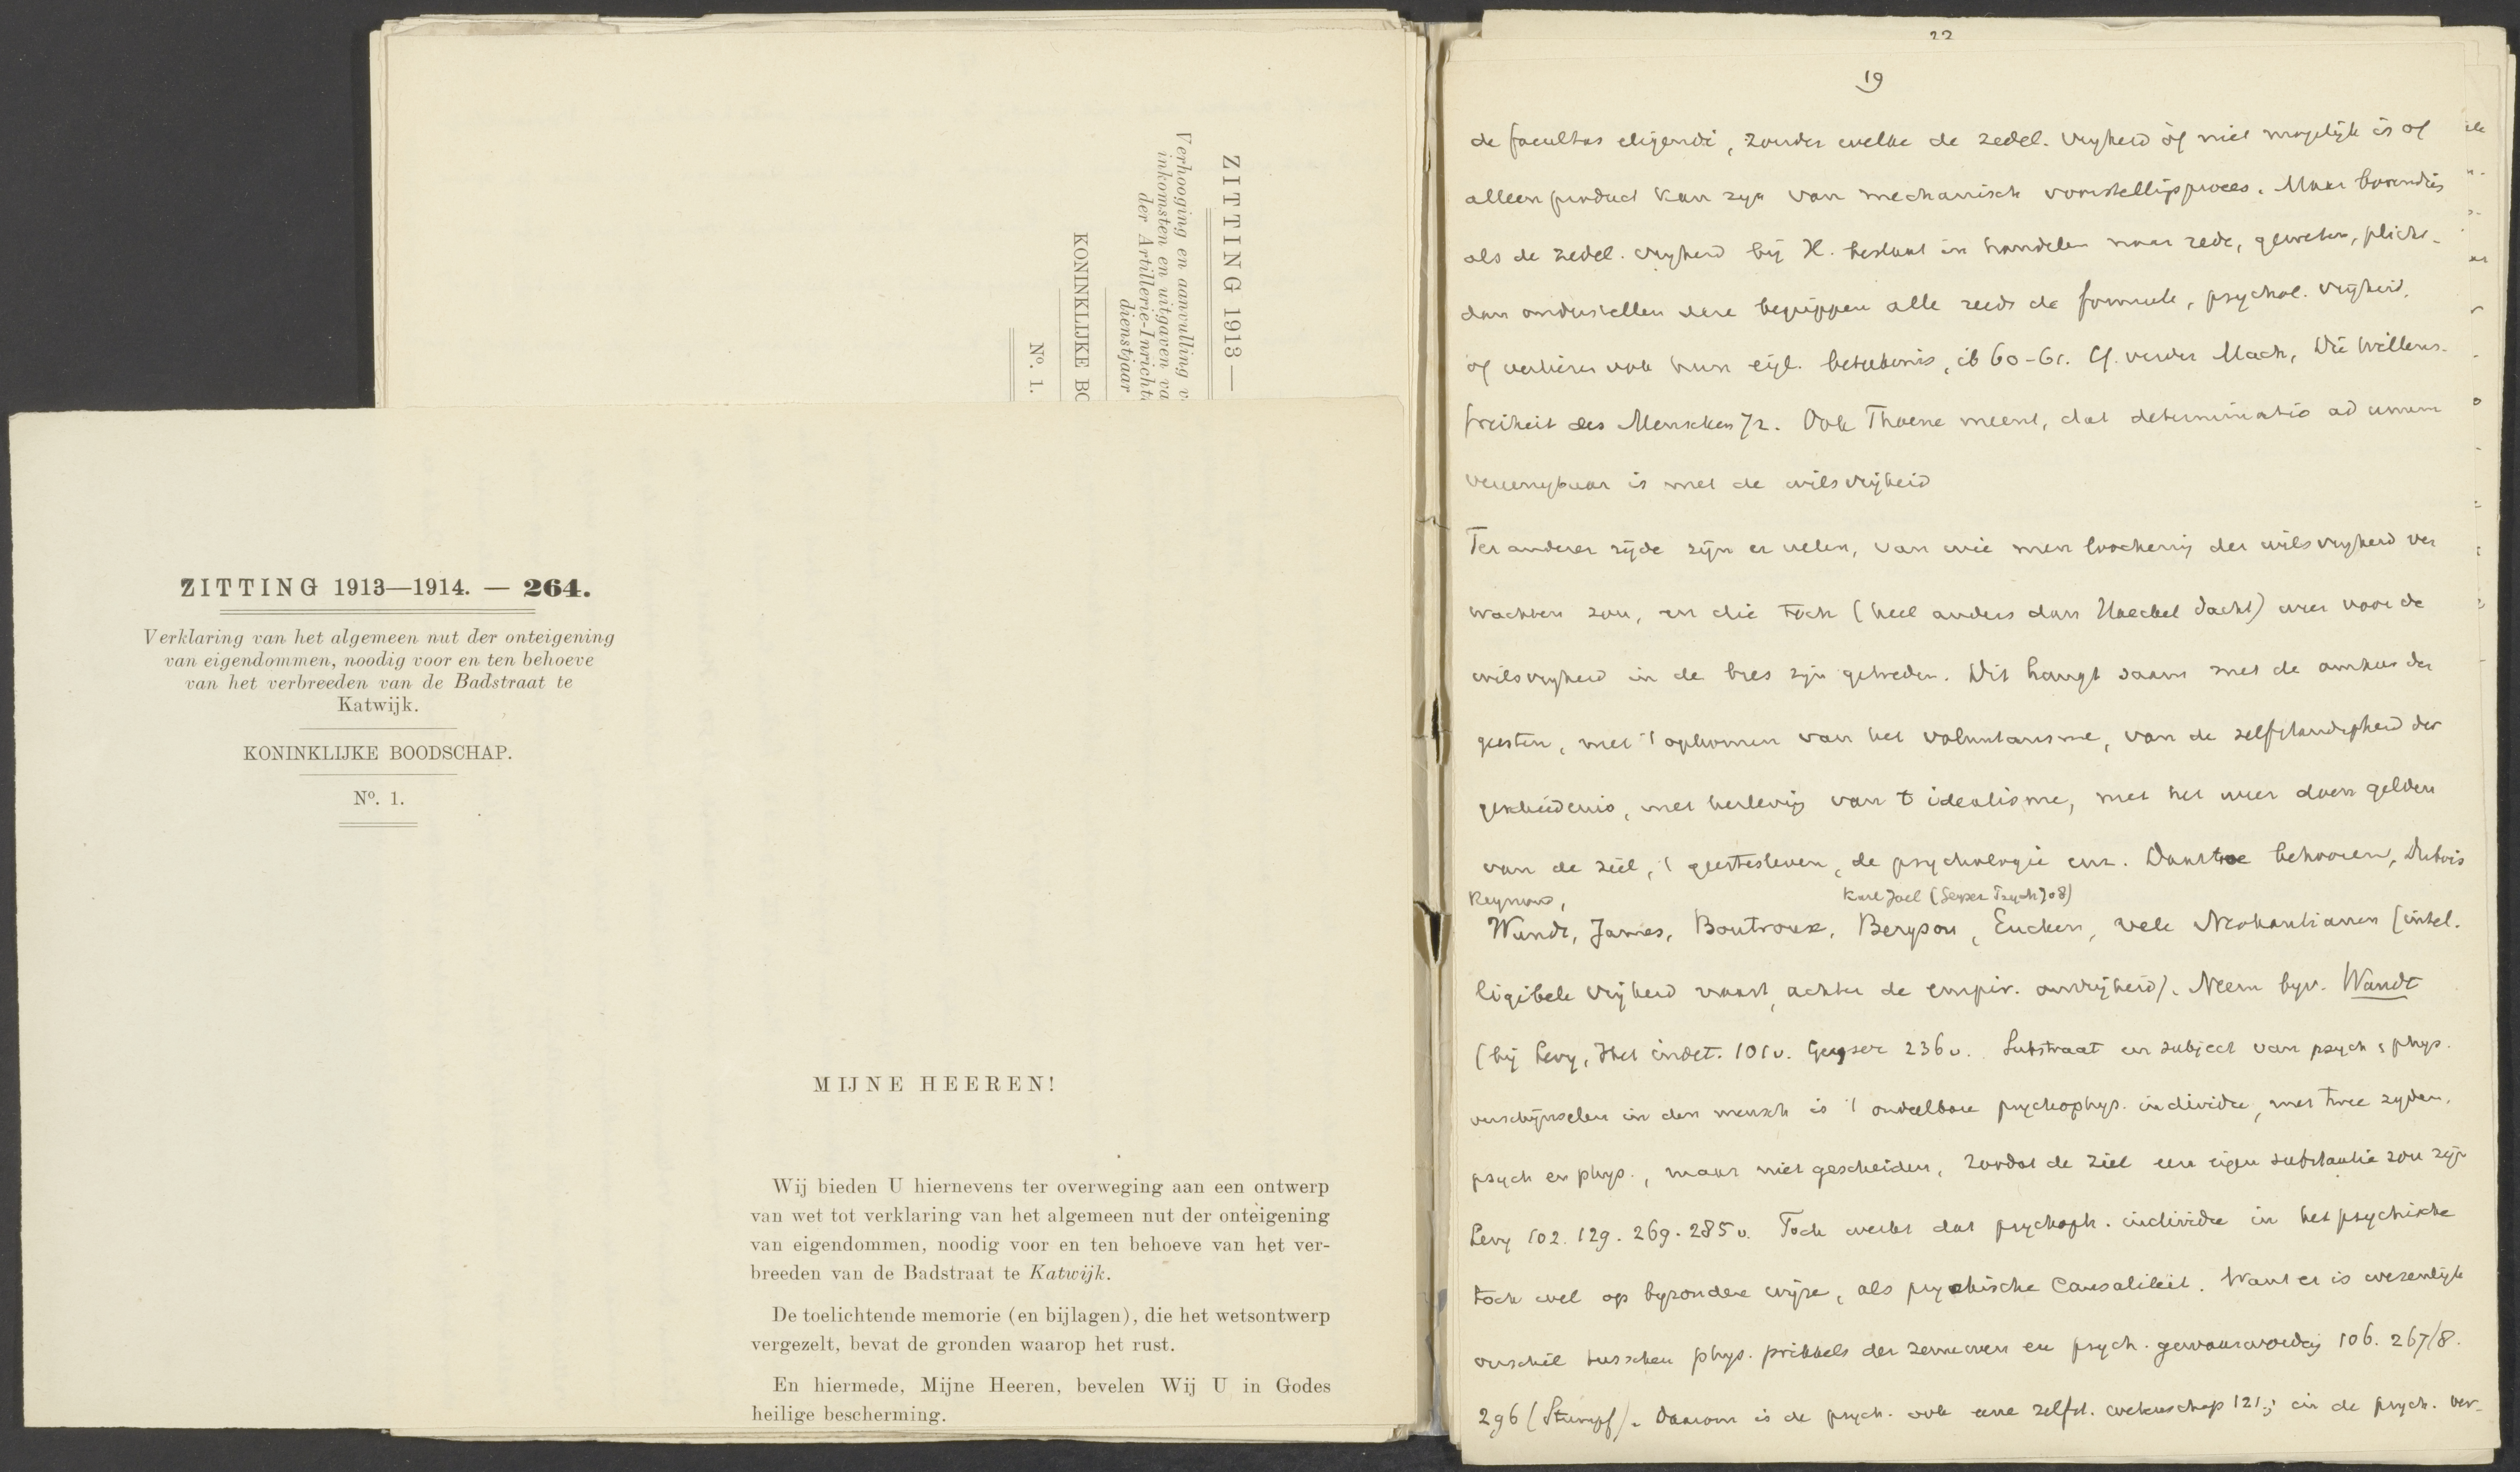 ZITTING 1913 —
Verhooging en aanvulling v
inkomsten en uitgaven va
der Artillerie-Inricht
dienstjaar
KONINKLIJKE BO
No. 1.
ZITTING 1913—1914. — 264.
Verklaring van het algemeen nut der onteigening
van eigendommen, noodig voor en ten behoeve
van het verbreeden van de Badstraat te
Katwijk.
KONINKLIJKE BOODSCHAP.
No. 1.
MIJNE HEEREN!
Wij bieden U hiernevens ter overweging aan een ontwerp
van wet tot verklaring van het algemeen nut der onteigening
van eigendommen, noodig voor en ten behoeve van het ver-
breeden van de Badstraat te Katwijk.
De toelichtende memorie (en bijlagen), die het wetsontwerp
vergezelt, bevat de gronden waarop het rust.
En hiermede, Mijne Heeren, bevelen Wij U in Godes
heilige bescherming.
22
19
de facultas eligendi, zonder welke de zedel. vrijheid òf niet mogelijk is of
alleen product kan zijn van mechanisch voorstellingsproces. Maar bovendien
als de zedel. vrijheid bij H. bestaat in handelen naar rede, geweten, plicht-
dan onderstellen deze begrippen alle reeds de formeele, psychol. vrijheid,
of verliezen ook hun eigl. beteekenis, ib 60-61. Cf. verder Mach, Die Willens-
freiheit des Menschen 72. Ook Thoene meent, dat determinatio ad unum
vereenigbaar is met de wilsvrijheid
Ter anderer zijde zijn er velen, van wie men loochening der wilsvrijheid ver
wachten zou, en die toch (heel anders dan Haeckel dacht) weer voor de
wilsvrijheid in de bres zijn getreden. Dit hangt saam met de omkeer der
geesten, met 't opkomen van het voluntarisme, van de zelfstandigheid der
geschiedenis, met herleving van t idealisme, met het weer doen gelden
van de ziel, 't geestesleven, de psychologie enz. Daartoe behooren, Dubois
Reymond, Karl Joel (Geyser Psych 708)
Wundt, James, Boutroux, Bergson, Eucken, vele Neokantianen (intel.
ligibele vrijheid naast, achter de empir. onvrijheid). Neem bijv. Wundt
(bij Levy, Het indet. 101v. Geyser 236v. Substraat en subject van psych, phys.
verschijnselen in den mensch is 't ondeelbare psychophys. individu, met twee zijden,
psych en phys., maar niet gescheiden, zoodat de ziel een eigen substantie zou zijn
Levy 102. 129. 269. 285v. Toch werkt dat psychoph. individu in het psychische
toch wel op byzondere wijze, als psychische Causaliteit. Want er is wezenlijk
verschil tusschen phys. prikkels der zenuwen en psych. gewaarwording 106. 267/8.
296 (Stumpf). Daarom is de psych. ook eene zelfst. wetenschap 121; in de psych. ver-